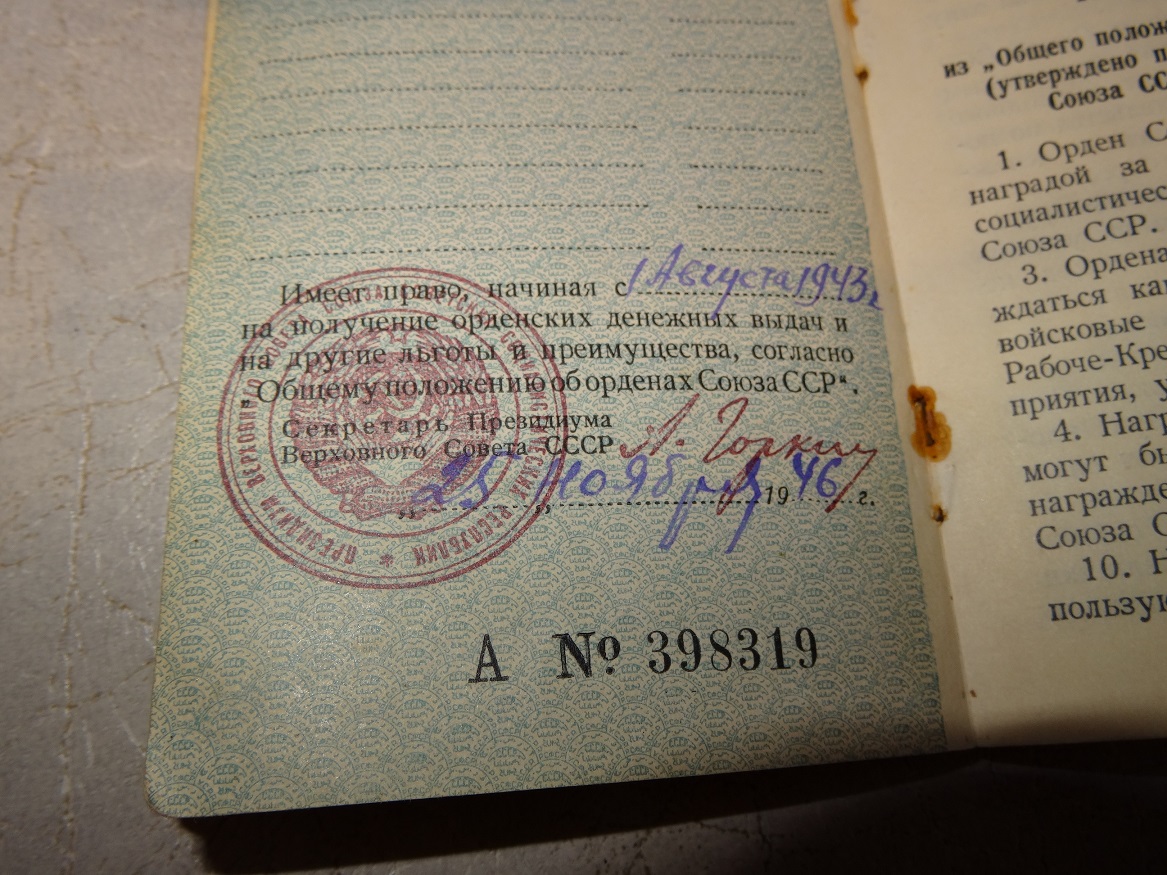 Имеет право, начиная с 1 Августа 1943 г.
на получение орденских денежных выдач и
на другие льготы и преимущества, согласно
„Общему положению об орденах Союза ССР“.
Секретарь Президиума
Верховного Совета СССР А. Горкин
„25„ Ноября 1946 г.
А № 398319
ПРЕЗИДИУМ ВЕРХОВНОГО
РЕСПУБЛИК
из „Общего полож
(утверждено п
Союза СС
1. Орден С
наградой за
социалистичес
Союза ССР.
3. Ордена
ждаться ка
войсковые
Рабоче-Кре
приятия, у
4. Наг
могут б
награжде
Союза С
10. Н
пользую